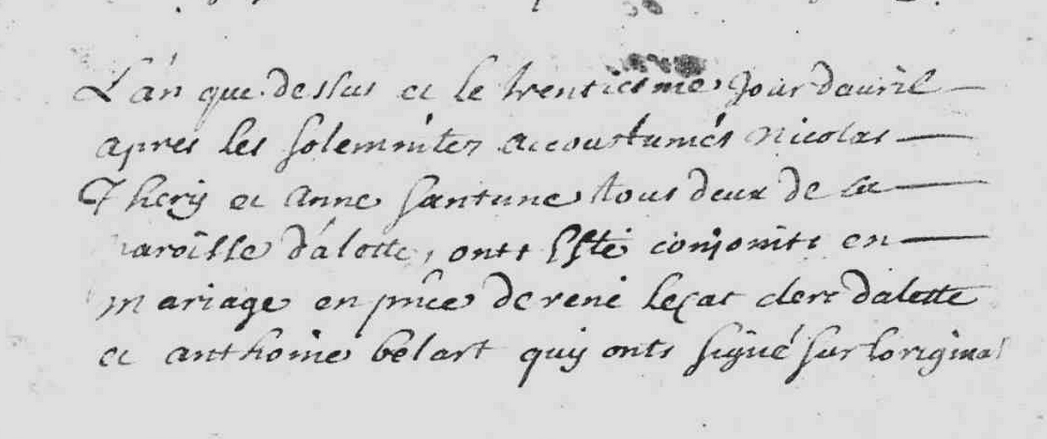 L'an que dessus et le trentiesme Jour davril
apres les solemnitez accoustumés nicolas
Thery et anne santune tous deux de la
paroisse d'alette, onts Esté conjoints en
mariage en pnce de rené leçat clerc dalette
et anthoine belart quy onts signé sur loriginal